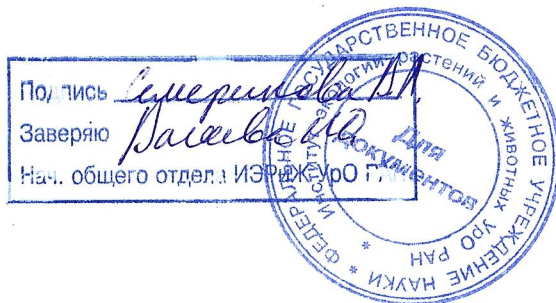 Подпись Семерикова В.Л.
Заверяю
Нач. общего отдела ИЭРиЖ УрО РАН
ФЕДЕРАЛЬНОЕ ГОСУДАРСТВЕННОЕ БЮДЖЕТНОЕ УЧРЕЖДЕНИЕ НАУКИ *
Институт экологии растений и животных УрО РАН *
Для
документов